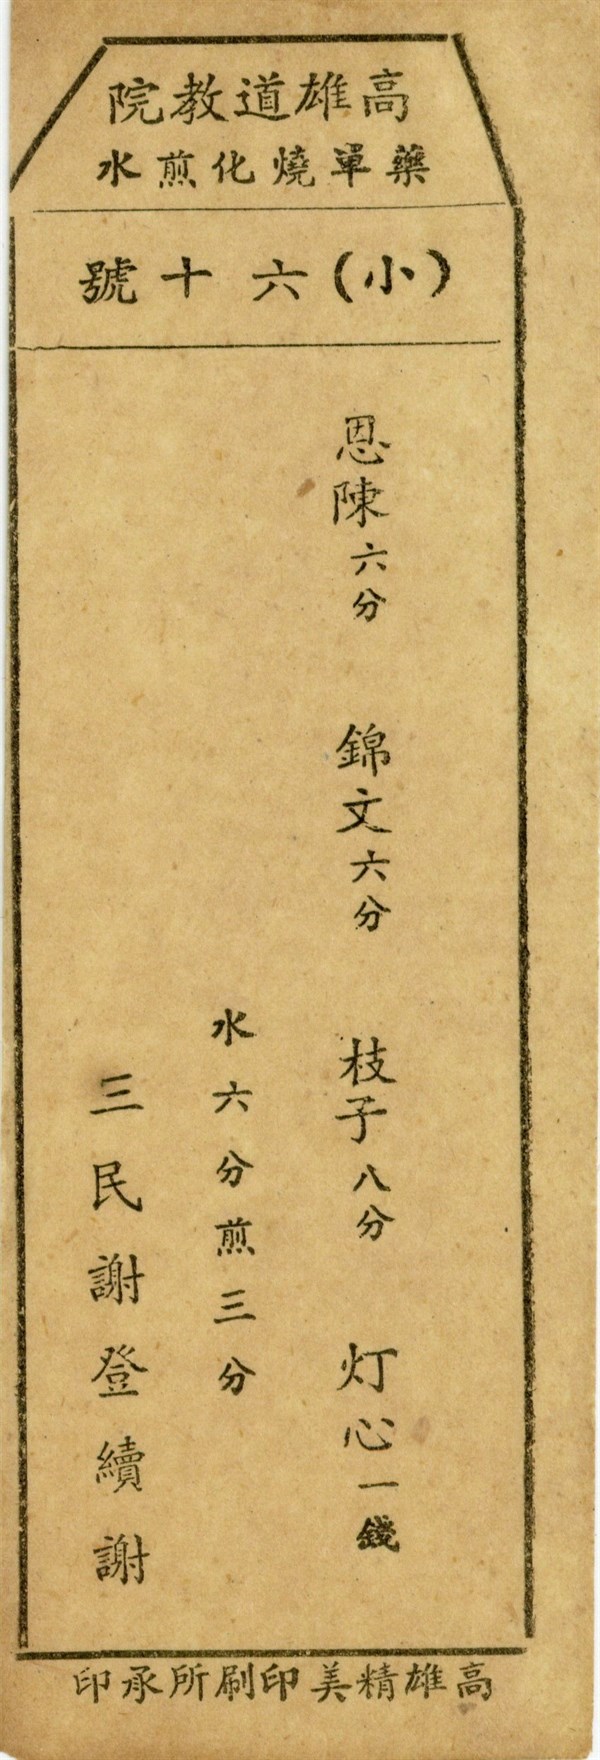 高雄道教院
藥單燒化煎水
(小)六十號
恩陳六分 錦文六分 枝子八分 灯心一錢
水六分煎三分
三民謝登續謝
高雄精美印刷所承印